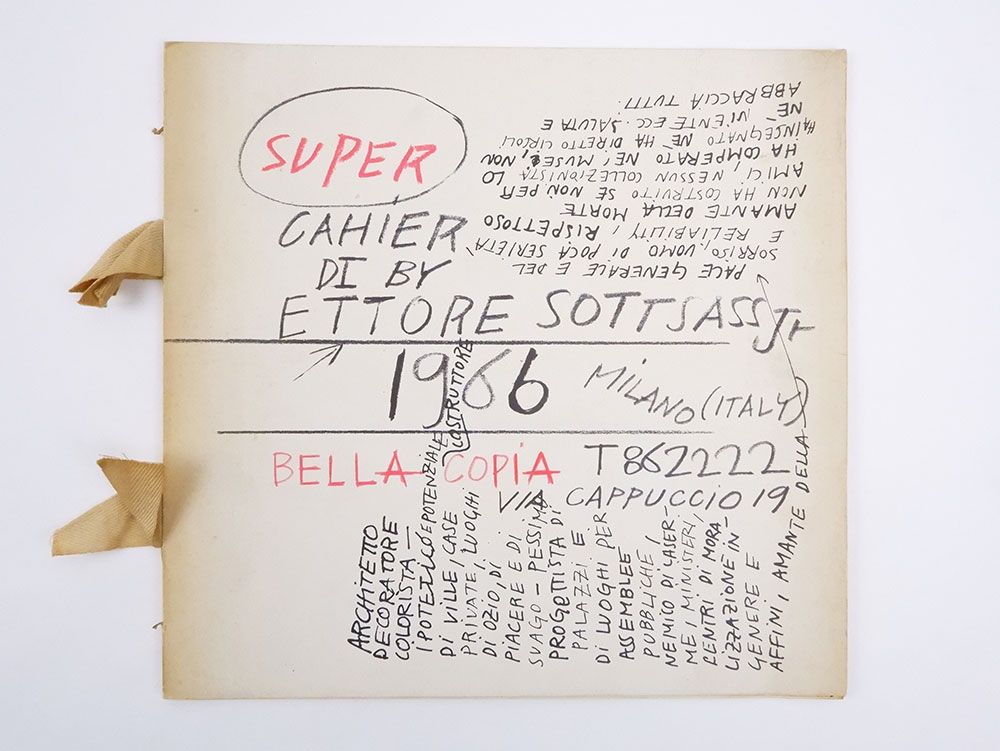 SUPER
CAHIER
DI BY
ETTORE SOTTSASS Jr
1966
MILANO (ITALY)
BELLA COPIA
T 862222
VIA CAPPUCCIO 19
ARCHITETTO
DECORATORE
COLORISTA —
IPOTETICO E POTENZIALE COSTRUTTORE
DI VILLE, CASE
PRIVATE, LUOGHI
DI OZIO, DI
PIACERE E DI
SVAGO - PESSIMO
PROGETTISTA DI
PALAZZI E
DI LUOGHI PER
ASSEMBLEE
PUBBLICHE,
NEMICO DI CASER-
ME, MINISTERI,
CENTRI DI MORA-
LIZZAZIONE IN-
GENERE E
AFFINI, AMANTE DELLA
PACE GENERALE E DEL
SORRISO, UOMO DI POCA SERIETÀ
E RELIABILITY, RISPETTOSO
AMANTE DELLA MORTE
NON HA COSTRUITO SE NON PER
AMICI, NESSUN COLLEZIONISTA LO
HA COMPERATO NÉ I MUSEI, NON
HA INSEGNATO NÉ HA DIRETTO CIRCOLI
NÉ NIENTE ECC. SALUTA E
ABBRACCIA TUTTI.